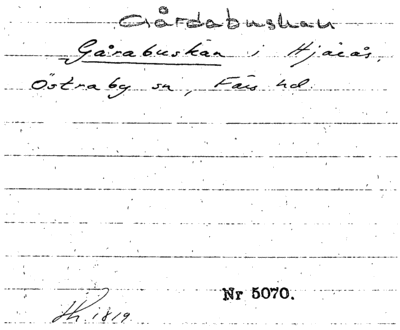 Gårdabuskan
Gårabuskan i Hjärås,
Östraby sn, Färs hd.
Nr 5070.
1819